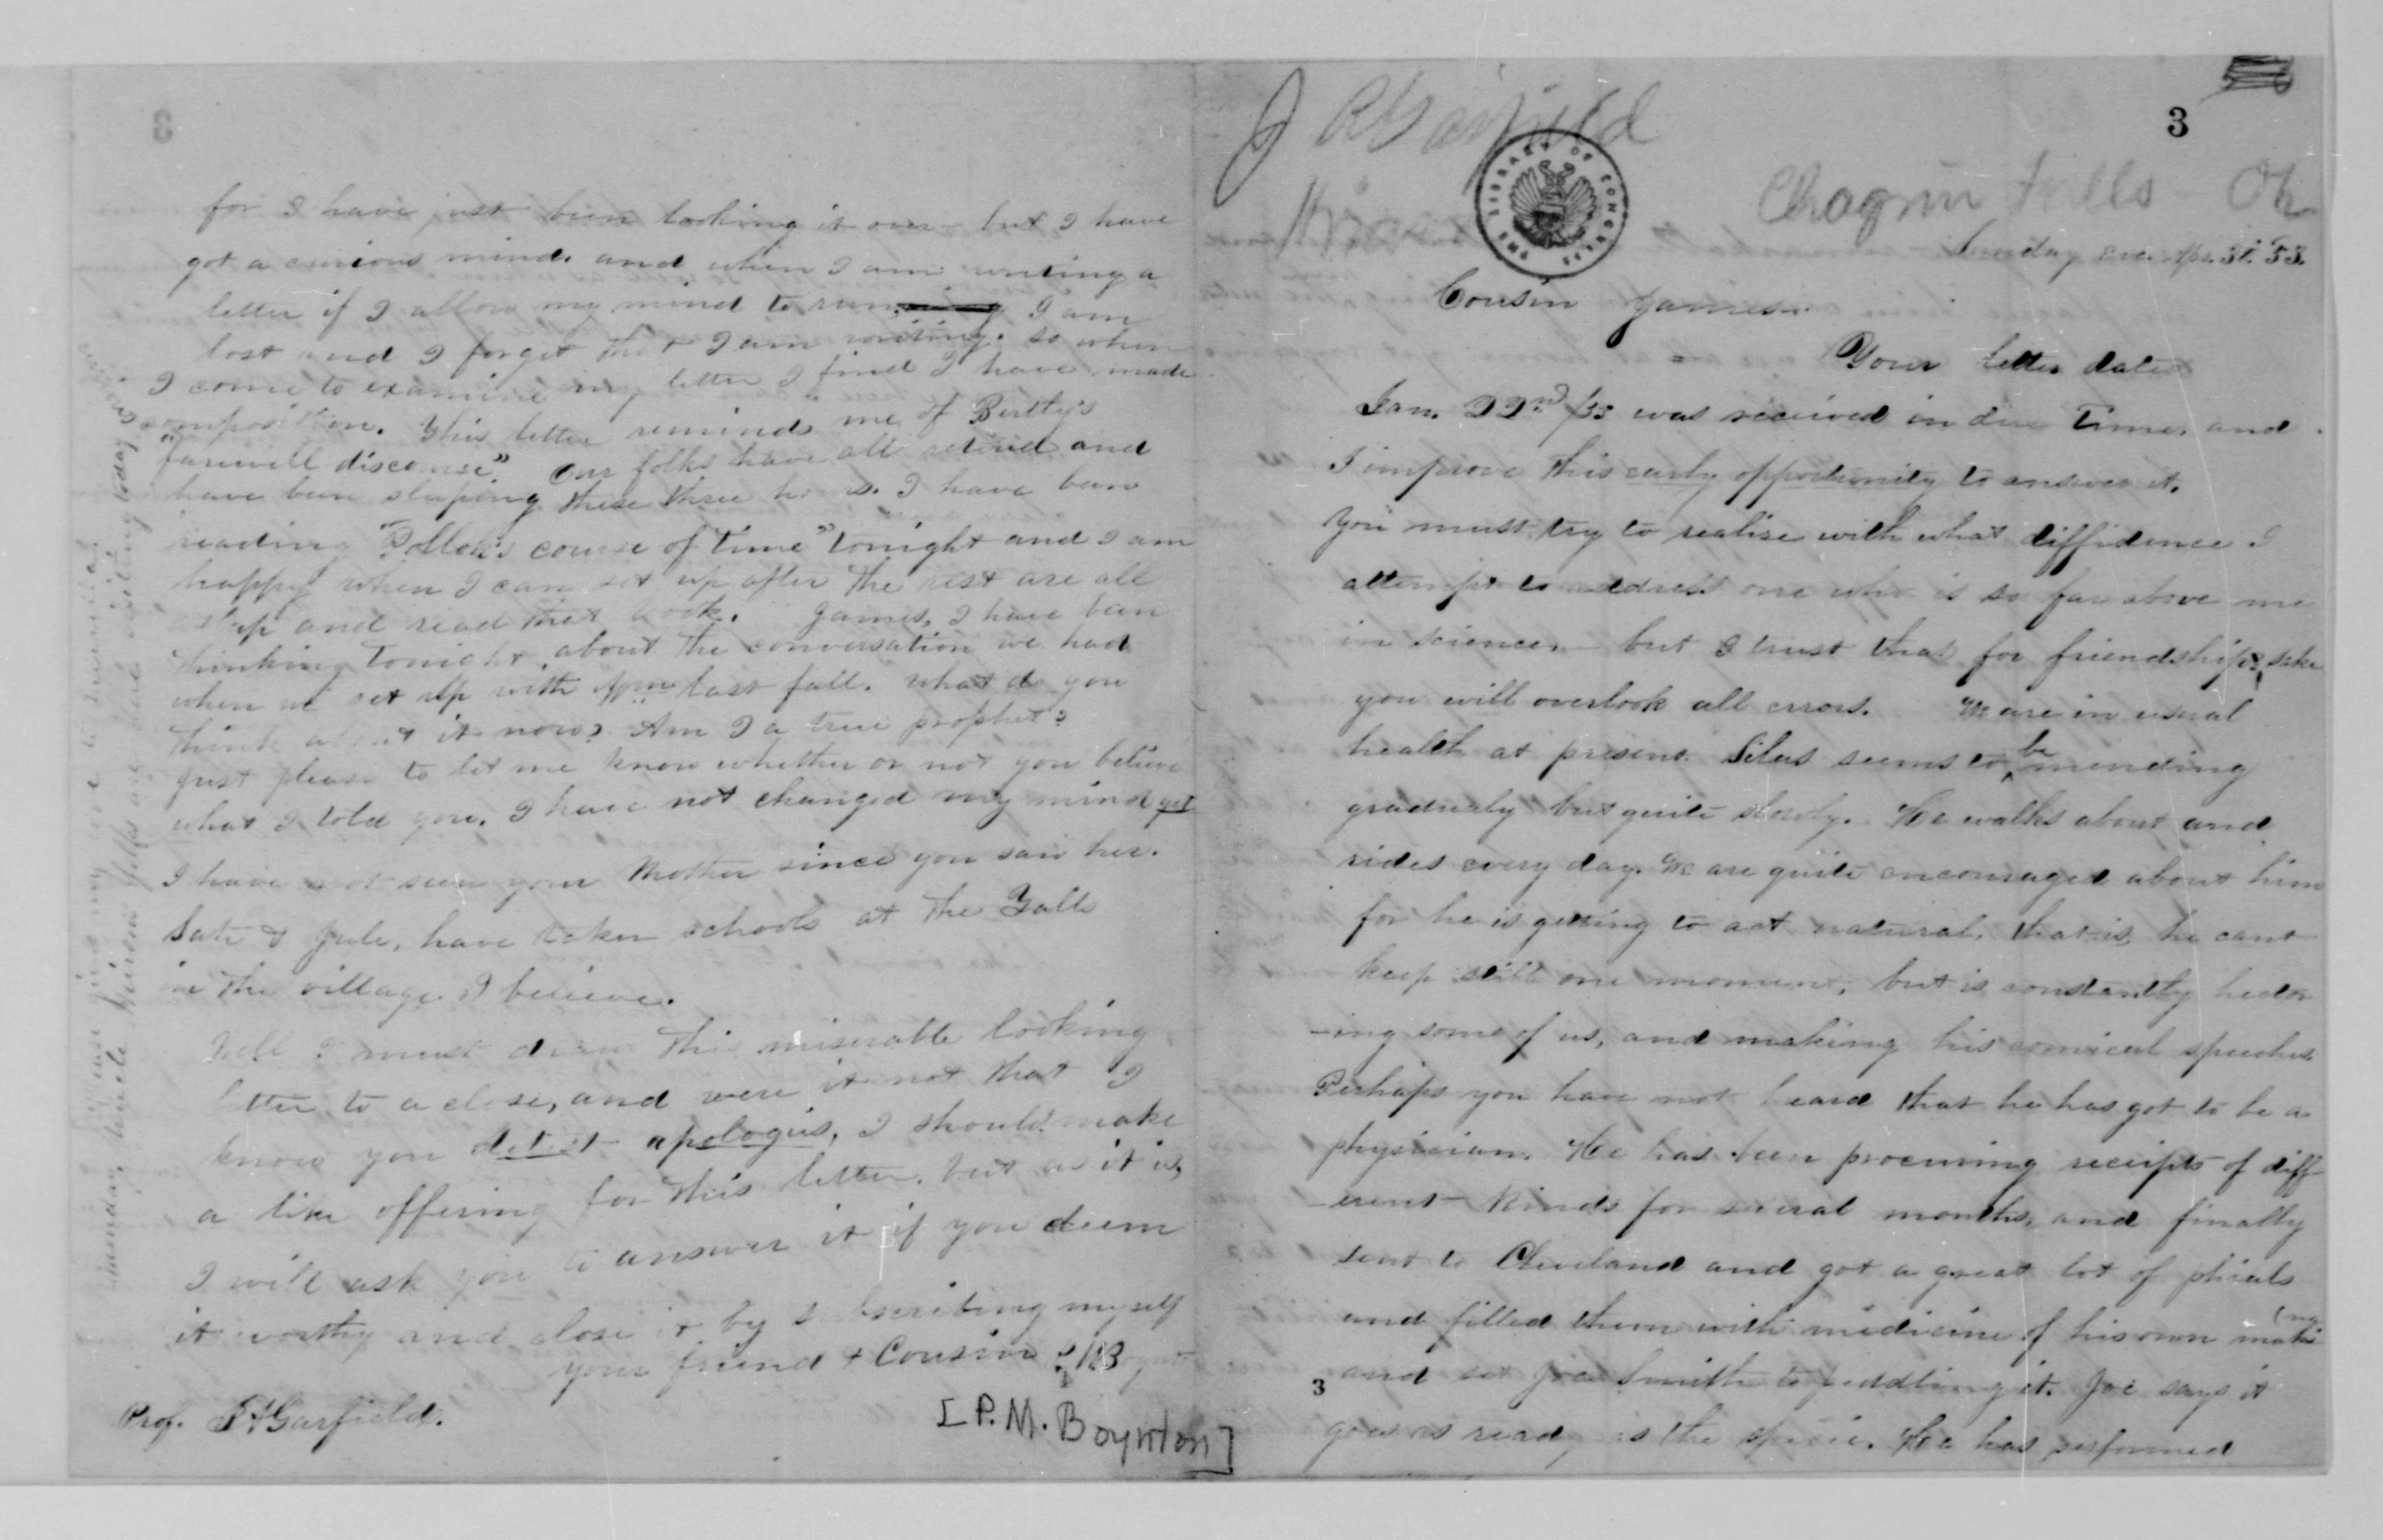 3
J A Garfield
Hiram
Chagrin Falls Oh
THE LIBRARY OF CONGRESS
Sunday eve. Apr. 3d. 53.
Cousin James.
Your letter dated
Jan. 22nd /53 was received in due time, and
I improve this early opportunity to answer it.
You must try to realise with what diffidence I
attempt to address one who is so far above me
in science, but I trust that for friendship's sake
you will overlook all errors. We are in usual
health at present. Silas seems to be mending
gradualy but quite slowly. He walks about and
rides every day. We are quite encouraged about him
for he is getting to act natural. that is, he cant
keep still one moment, but is constantly hector
-ing some of us, and making his comical speeches
Perhaps you have not heard that he has got to be a
physician. He has been procuring receipts of diff
-erent kinds for several months, and finally
sent to Cleveland and got a great lot of phials
and filled them with medicine of his own making
and set Joe Smith to peddling it. Joe says it
3
goes as ready as the specie. He has performed
for I have just been looking it over but I have
got a curious mind. and when I am writing a
letter if I allow my mind to run I am
lost and I forget that I am writing. so when
I come to examine my letter I find I have made
composition. This letter reminds me of
"farewell discourse". Our folks have all retired and
have been sleeping these three hours. I have been
reading "Pollok's course of time" tonight and I am
happy when I can set up after the rest are all
asleep and read that book. James, I have been
thinking tonight about the conversation we had
when we set up with last fall. what do you
think about it now? Am I a true prophet?
just please to let me know whether or not you believe
what I told you. I have not changed my mind yet
I have not seen your Mother since you saw her.
Sate & Jule, have taken schools at the Falls
in the village I believe.
Well I must draw this miserable looking
letter to a close, and were it not that I
know you detest apologies, I should make
a like offering for this letter. but as it is,
I will ask you to answer it if you deem
it worthy and close it by subscribing myself
your friend & Cousin P M Boynton
[P.M. Boynton]
Prof. J A Garfield.